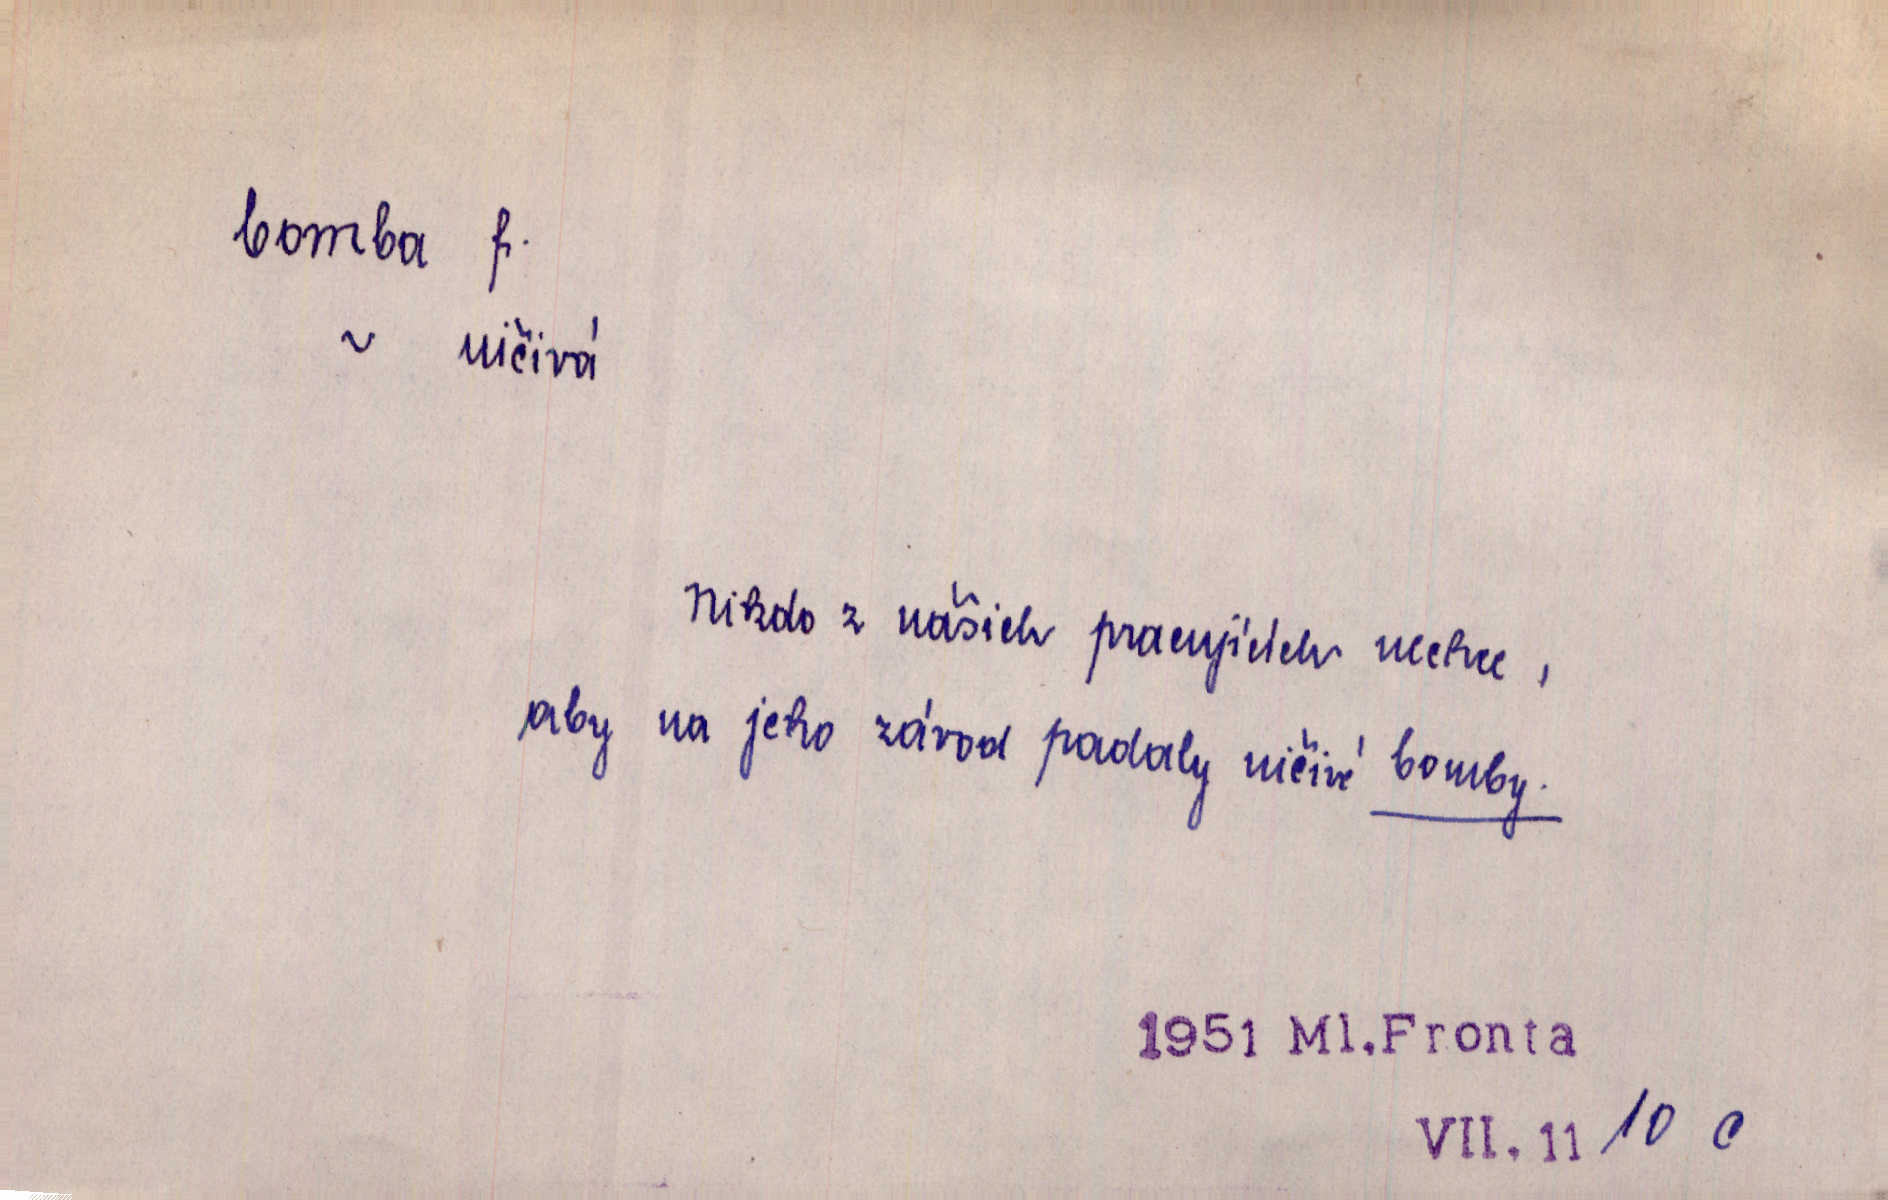 bomba f.
~ ničivá
Nikdo z našich pracujících nechce,
aby na jeho závod padaly ničivé bomby.
1951 Ml.Fronta
VII. 11 /10 c